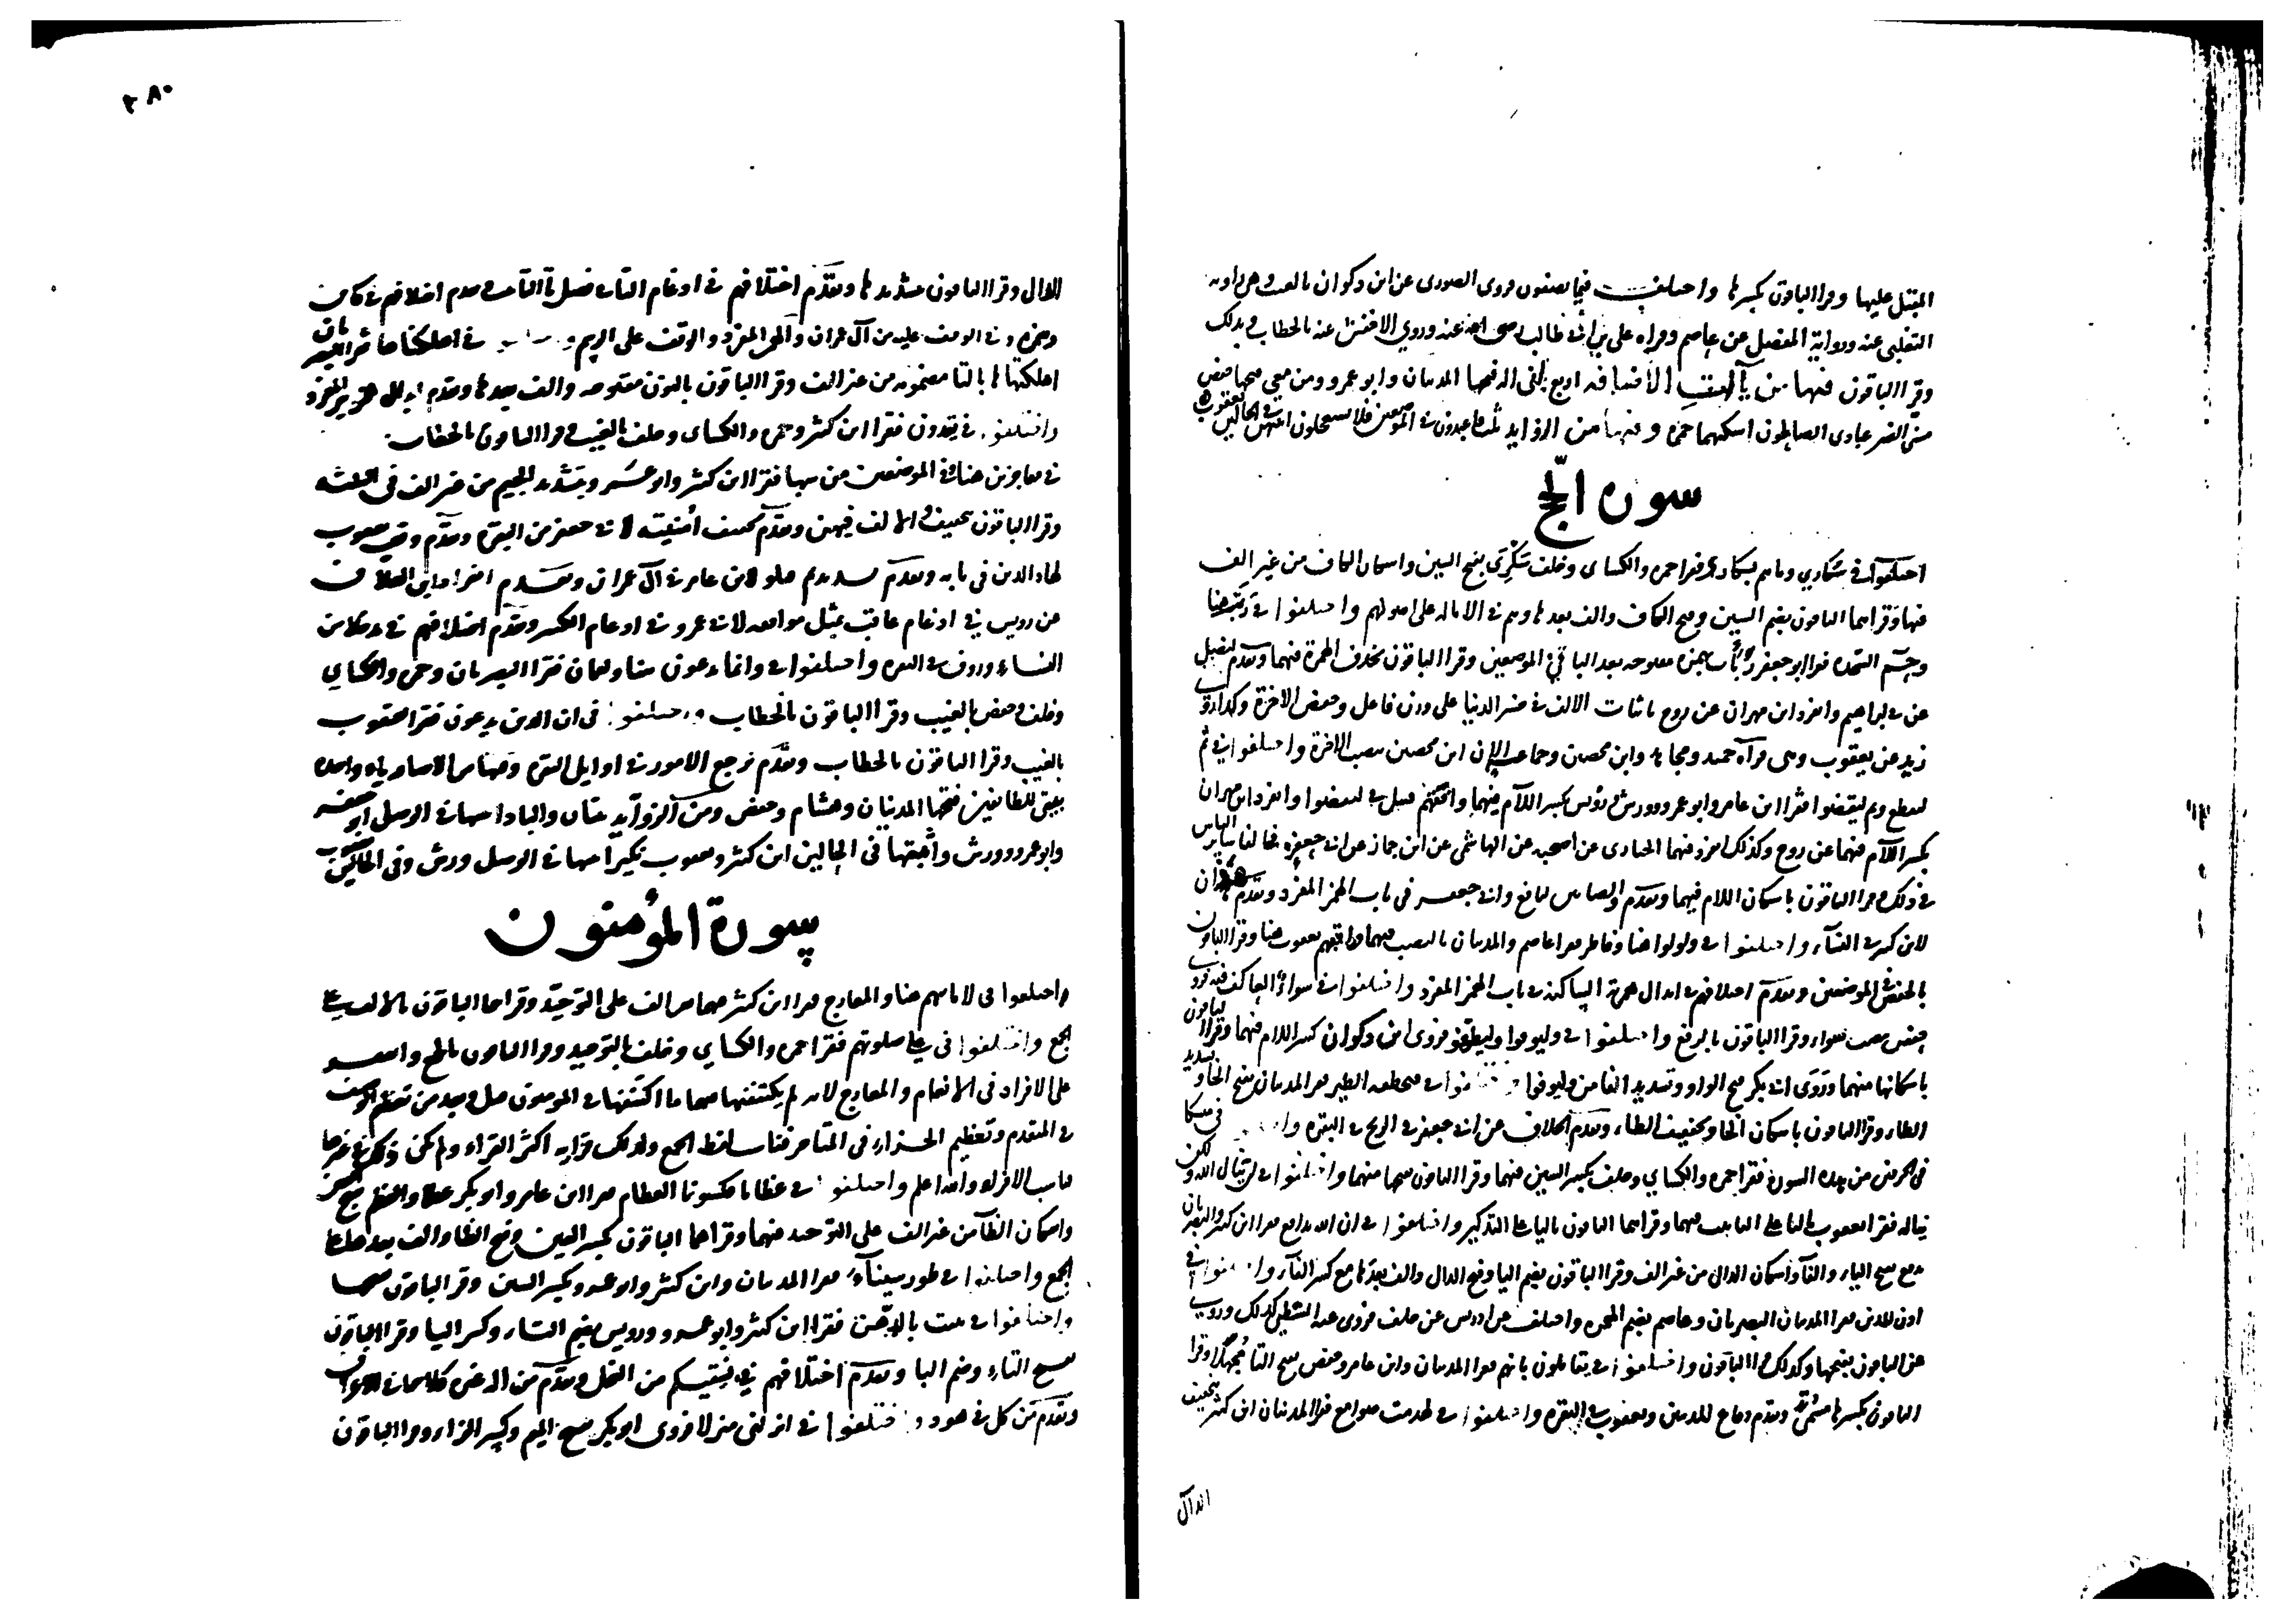 المقبل عليها وقرا الباقون بكسرها واختلف فيما تصفون فروى الصوري عن ابن ذكوان بالغيب وهي رواية
التغلبي عنه ورواية المفضل عن عاصم وقراءة علي بن ابي طالب رضي الله عنه وروى الاخفش عنه بالخطاب وبذلك
وقرا الباقون فيها من يآءت الاضافة اربع اني اله فتحها المدنيان وابو عمرو ومن معي فتحها حفص
مسني الضر عبادي الصالحون اسكنهما حمزة وفيها من الزوايد ثلث فاعبدون في الموضعين فلا تستعجلون اثبتهن في الحالين يعقوب
سورة الحج
اختلفوا في سكارى وما هم بسكارى فقرا حمزة والكسائي وخلف سكرى بفتح السين واسكان الكاف من غير الف
فيهما وقراهما الباقون بضم السين وفتح الكاف والف بعدها وهم في الامالة على اصولهم واختلفوا في ربت هنا
وحم السجدة فقرا ابو جعفر ربأت بهمزة مفتوحة بعد البا في الموضعين وقرا الباقون بحذف الهمزة فيهما وتقدم ليضل
عن في ابراهيم وانفرد ابن مهران عن روح باثبات الالف في خسر الدنيا على وزن فاعل وخفض الاخرة وكذا روى
زيد عن يعقوب وهي قراءة حميد ومجاهد وابن محيصن وجماعة الا ان ابن محيصن بنصب الاخرة واختلفوا في ثم
ليقطع وثم ليقضوا فقرا ابن عامر وابو عمرو وورش ورويس بكسر اللام فيهما وافقهم قنبل في ليقضوا وانفرد ابن مهران
بكسر اللام فيهما عن روح وكذلك انفرد فيهما الخبازي عن اصحابه عن الهاشمي عن ابن جماز عن ابي جعفر فخالفا ساير الناس
في ذلك وقرا الباقون باسكان اللام فيهما وتقدم والصابين لنافع وابي جعفر في باب الهمز المفرد وتقدم هذان
لابن كثير في النساء واختلفوا في ولولوا هنا وفاطر فقرا عاصم والمدنيان بالنصب فيهما وافقهم يعقوب هنا وقرا الباقون
بالخفض في الموضعين وتقدم اختلافهم في ابدال همزته الساكنة في باب الهمز المفرد واختلفوا في سواء العاكف فيه فروى
حفص بنصب سواء وقرا الباقون بالرفع واختلفوا في وليوفوا وليطوفوا فروى ابن ذكوان كسر اللام فيهما وقرا الباقون
باسكانها منهما وروى ابو بكر فتح الواو وتشديد الفا من وليوفوا واختلفوا في فتخطفه الطير فقرا المدنيان بفتح الخا وتشديد
الطاء وقرا الباقون باسكان الخا وتخفيف الطاء وتقدم الخلاف عن ابي جعفر في الريح في البقرة واختلفوا في منسكا
في الحرفين من هذه السورة فقرا حمزة والكسائي وخلف بكسر السين فيهما وقرا الباقون بفتحها منهما واختلفوا في لن ينال الله ولكن
يناله فقرا يعقوب بالتا على التانيث فيهما وقراهما الباقون باليا على التذكير واختلفوا في ان الله يدافع فقرا ابن كثير والبصريان
يدفع بفتح الياء والفآ واسكان الدال من غير الف وقرا الباقون بضم اليا وفتح الدال والف بعدها مع كسر الفآء واختلفوا في
اذن للذين فقرا المدنيان البصريان وعاصم بضم الهمزة واختلف عن ادريس عن خلف فروى عنه الشطي كذلك وروى
عنه الباقون بفتحها وكذلك قرا الباقون واختلفوا في يقاتلون بانهم فقرا المدنيان وابن عامر وحفص بفتح التا مجهلا وقرا
الباقون بكسرها مسمى وتقدم دفاع للمدنيين ويعقوب في البقرة واختلفوا في لهدمت صوامع فقرا المدنيان ابن كثير بتخفيف
الدال
٣٨٠
الدال وقرا الباقون بتشديدها وتقدم اختلافهم في ادغام التاء فصل تاء التانيث وتقدم اختلافهم في كاين
وهمزه وفي الوقف عليه من آل عمران والهمز المفرد والوقف على الرسم واختلفوا في اهلكناها فقرا البصريان
اهلكتها بالتا مضمومة من غير الف وقرا الباقون بالنون مفتوحة والف بعدها وتقدم ابدال همز بير في الهمز المفرد
واختلفوا في تعدون فقرا ابن كثير وحمزة والكسائي وخلف بالغيب وقرا الباقون بالخطاب
في معاجزين هنا وفي الموضعين من سبا فقرا ابن كثير وابو عمرو بتشديد الجيم من غير الف في الثلثة
وقرا الباقون بتخفيف والالف فيهن وتقدم تخفيف امنيته لابي جعفر من البقرة وتقدم وقف يعقوب
لهاد الذين في بابه وتقدم تشديد ثم قتلوا لابن عامر في آل عمران وتقدم انفراد ابن العلاف
عن رويس في ادغام عاقب بمثل موافقة لابي عمرو في ادغام الكبير وتقدم اختلافهم في مدخلا من
النساء ورؤف في البقرة واختلفوا في وانما يدعون هنا ولقمان فقرا البصريان وحمزة والكسائي
وخلف وحفص بالغيب وقرا الباقون بالخطاب واختلفوا في ان الذين يدعون فقرا يعقوب
بالغيب وقرا الباقون بالخطاب وتقدم ترجع الامور في اوايل البقرة وفيها من الاضافة ياء واحدة
بيتي للطايفين فتحها المدنيان وهشام وحفص ومن الزوايد ثنتان والباد اثبتها في الوصل ابو جعفر
وابو عمرو وورش واثبتها في الحالين ابن كثير ويعقوب نكير اثبتها في الوصل ورش وفي الحالين يعقوب
سورة المؤمنون
واختلفوا في لاماناتهم هنا والمعارج فقرا ابن كثير فيهما بغير الف على التوحيد وقراهما الباقون بالالف على
الجمع واختلفوا في على صلوتهم فقرا حمزة والكسائي وخلف بالتوحيد وقرا الباقون بالجمع واتفقوا
على الافراد في الانعام والمعارج لانه لم يكتنفها فيهما ما اكتنفها في المومنون قبل وبعد من تعظيم الوصف
في المتقدم وتعظيم الجزاء في المتاخر فناسب لفظ الجمع ولذلك قرا به اكثر القراء ولم يكن ذلك في غيرها
فناسب الافراد والله اعلم واختلفوا في عظاما فكسونا العظام فقرا ابن عامر وابو بكر عظما والعظم بفتح العين
واسكان الظا من غير الف على التوحيد فيهما وقراهما الباقون بكسر العين وفتح الظا والف بعدها على
الجمع واختلفوا في طور سيناء فقرا المدنيان وابن كثير وابو عمرو بكسر السين وقرا الباقون بفتحها
واختلفوا في تنبت بالدهن فقرا ابن كثير وابو عمرو ورويس بضم التاء وكسر البا وقرا الباقون
بفتح التاء وضم البا وتقدم اختلافهم في نسقيكم من النحل وتقدم من اله غيره كلاهما في الاعراف
وتقدم من كل في هود واختلفوا في انزلني منزلا فروى ابو بكر بفتح الميم وكسر الزاء وقرا الباقون